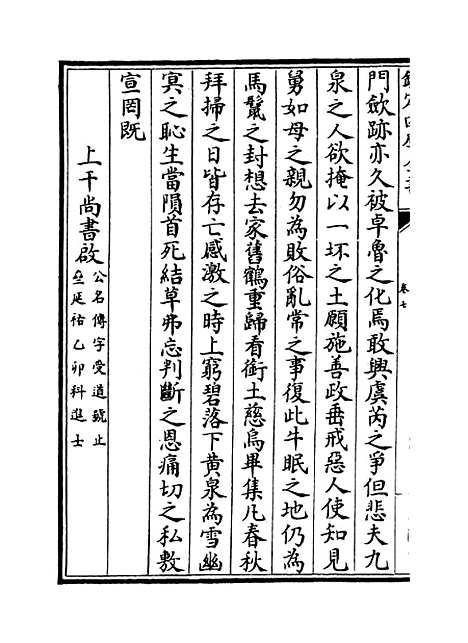 欽定四庫全書
卷七
門歛跡亦久被卓魯之化焉敢興虞芮之爭但悲夫九
泉之人欲掩以一坏之土願施善政垂戒惡人使知見
舅如母之親勿為敗俗亂常之事復此牛眠之地仍為
馬鬛之封想去家舊鶴重歸看銜土慈烏畢集凡春秋
拜掃之日皆存亡感激之時上窮碧落下黄泉為雪幽
冥之恥生當隕首死結草弗忘判斷之恩痛切之私敷
宣罔既
上干尚書啟
公名傳字受道號止
延祐乙卯科進士